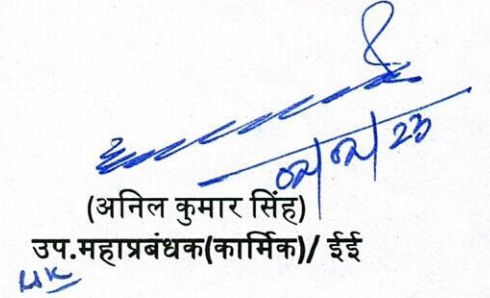 02/02/23
(अनिल कुमार सिंह)
उप.महाप्रबंधक(कार्मिक)/ ईई